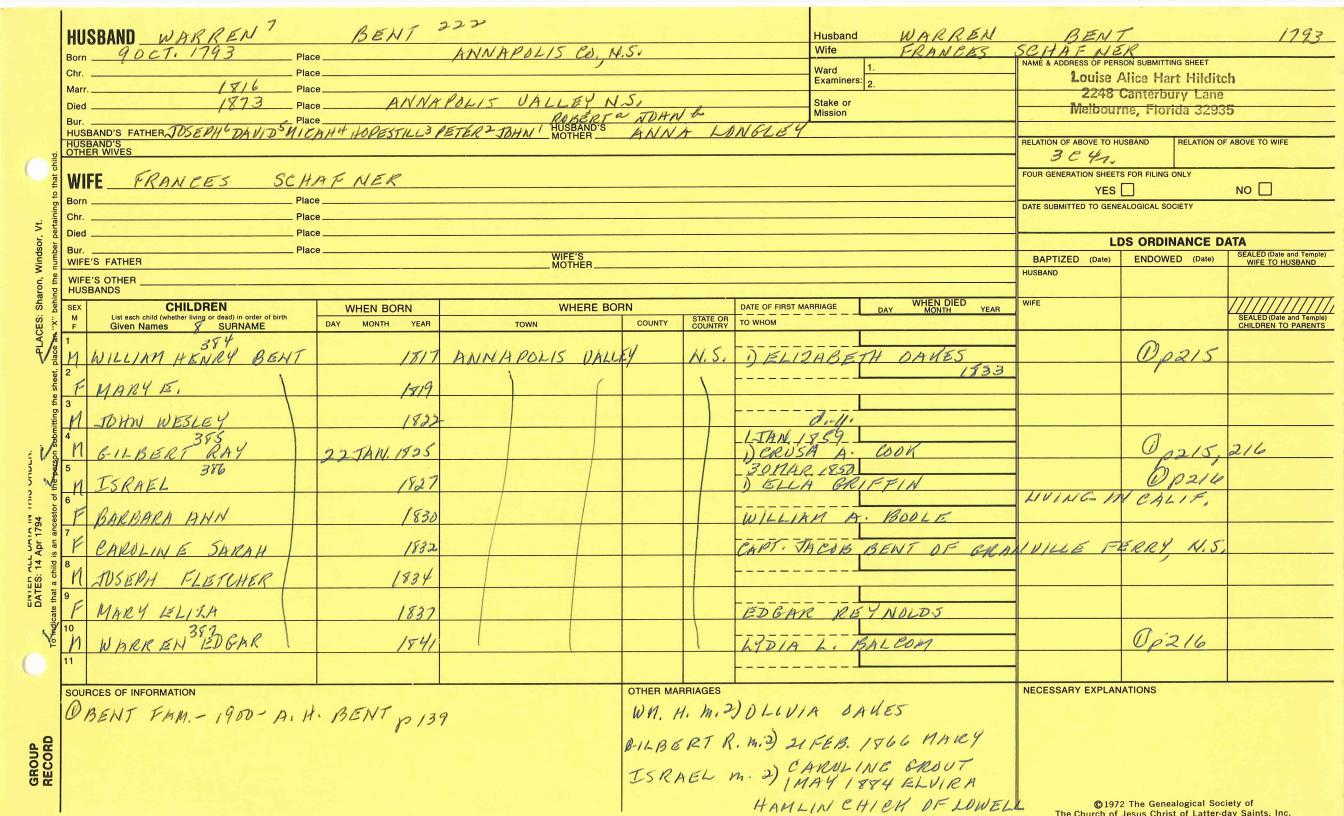 HUSBAND WARREN 7 BENT 222
Born 9 OCT. 1793 Place ANNAPOLIS CO., N.S.
Chr. Place
Marr. 1816 Place
Died 1873 Place ANNAPOLIS VALLEY N.S.
Bur. Place ROBERT a JOHN b
HUSBAND'S FATHER JOSEPH 6 DAVID 5 MICAH 4 HOPESTILL 3 PETER 2 JOHN 1 HUSBAND'S MOTHER ANNA LONGLEY
HUSBAND'S OTHER WIVES
WIFE FRANCES SCHAFNER
Born Place
Chr. Place
Died Place
Bur. Place
WIFE'S FATHER WIFE'S MOTHER
WIFE'S OTHER HUSBANDS
Husband WARREN BENT 1793
Wife FRANCES SCHAFNER
Ward Examiners: 1.
2.
Stake or Mission
NAME & ADDRESS OF PERSON SUBMITTING SHEET
Louise Alice Hart Hilditch
2248 Canterbury Lane
Melbourne, Florida 32935
RELATION OF ABOVE TO HUSBAND RELATION OF ABOVE TO WIFE
3 C 4r.
FOUR GENERATION SHEETS FOR FILING ONLY
YES NO
DATE SUBMITTED TO GENEALOGICAL SOCIETY
LDS ORDINANCE DATA
BAPTIZED (Date) ENDOWED (Date) SEALED (Date and Temple) WIFE TO HUSBAND
HUSBAND
WIFE
SEALED (Date and Temple) CHILDREN TO PARENTS
SEX M F CHILDREN WHEN BORN WHERE BORN DATE OF FIRST MARRIAGE WHEN DIED
List each child (whether living or dead) in order of birth
Given Names 8 SURNAME DAY MONTH YEAR TOWN COUNTY STATE OR COUNTRY TO WHOM DAY MONTH YEAR
384
1 M WILLIAM HENRY BENT 1817 ANNAPOLIS VALLEY N.S. 1) ELIZABETH OAKES ① p215
1833
2 F MARY E. 1819
3 M JOHN WESLEY 1822 d.y.
385 1 JAN. 1859
4 M GILBERT RAY 22 JAN. 1825 1) CRUSA A. COOK ① p215, 216
386 30 MAR. 1850
5 M ISRAEL 1827 1) ELLA GRIFFIN ① p216
LIVING IN CALIF.
6 F BARBARA ANN 1830 WILLIAM A. BOOLE
7 F CAROLINE SARAH 1832 CAPT. JACOB BENT OF GRANVILLE FERRY, N.S.
8 M JOSEPH FLETCHER 1834
9 F MARY ELIZA 1837 EDGAR REYNOLDS
387
10 M WARREN EDGAR 1841 LYDIA L. BALCOM ① p216
11
SOURCES OF INFORMATION
① BENT FAM. - 1900 - A. H. BENT p 139
OTHER MARRIAGES
WM. H. m. 2) OLIVIA OAKES
GILBERT R. m. 2) 21 FEB. 1866 MARY
CAROLINE GROUT
ISRAEL m. 2) 1 MAY 1884 ELVIRA
HAMLIN CHICK OF LOWELL
NECESSARY EXPLANATIONS
©1972 The Genealogical Society of
The Church of Jesus Christ of Latter-day Saints, Inc.
GROUP RECORD
ENTER ALL DATA IN THIS ORDER:
DATES: 14 Apr 1794 PLACES: Sharon, Windsor, Vt.
To indicate that a child is an ancestor of the person submitting the sheet, place an "X" behind the number pertaining to that child.